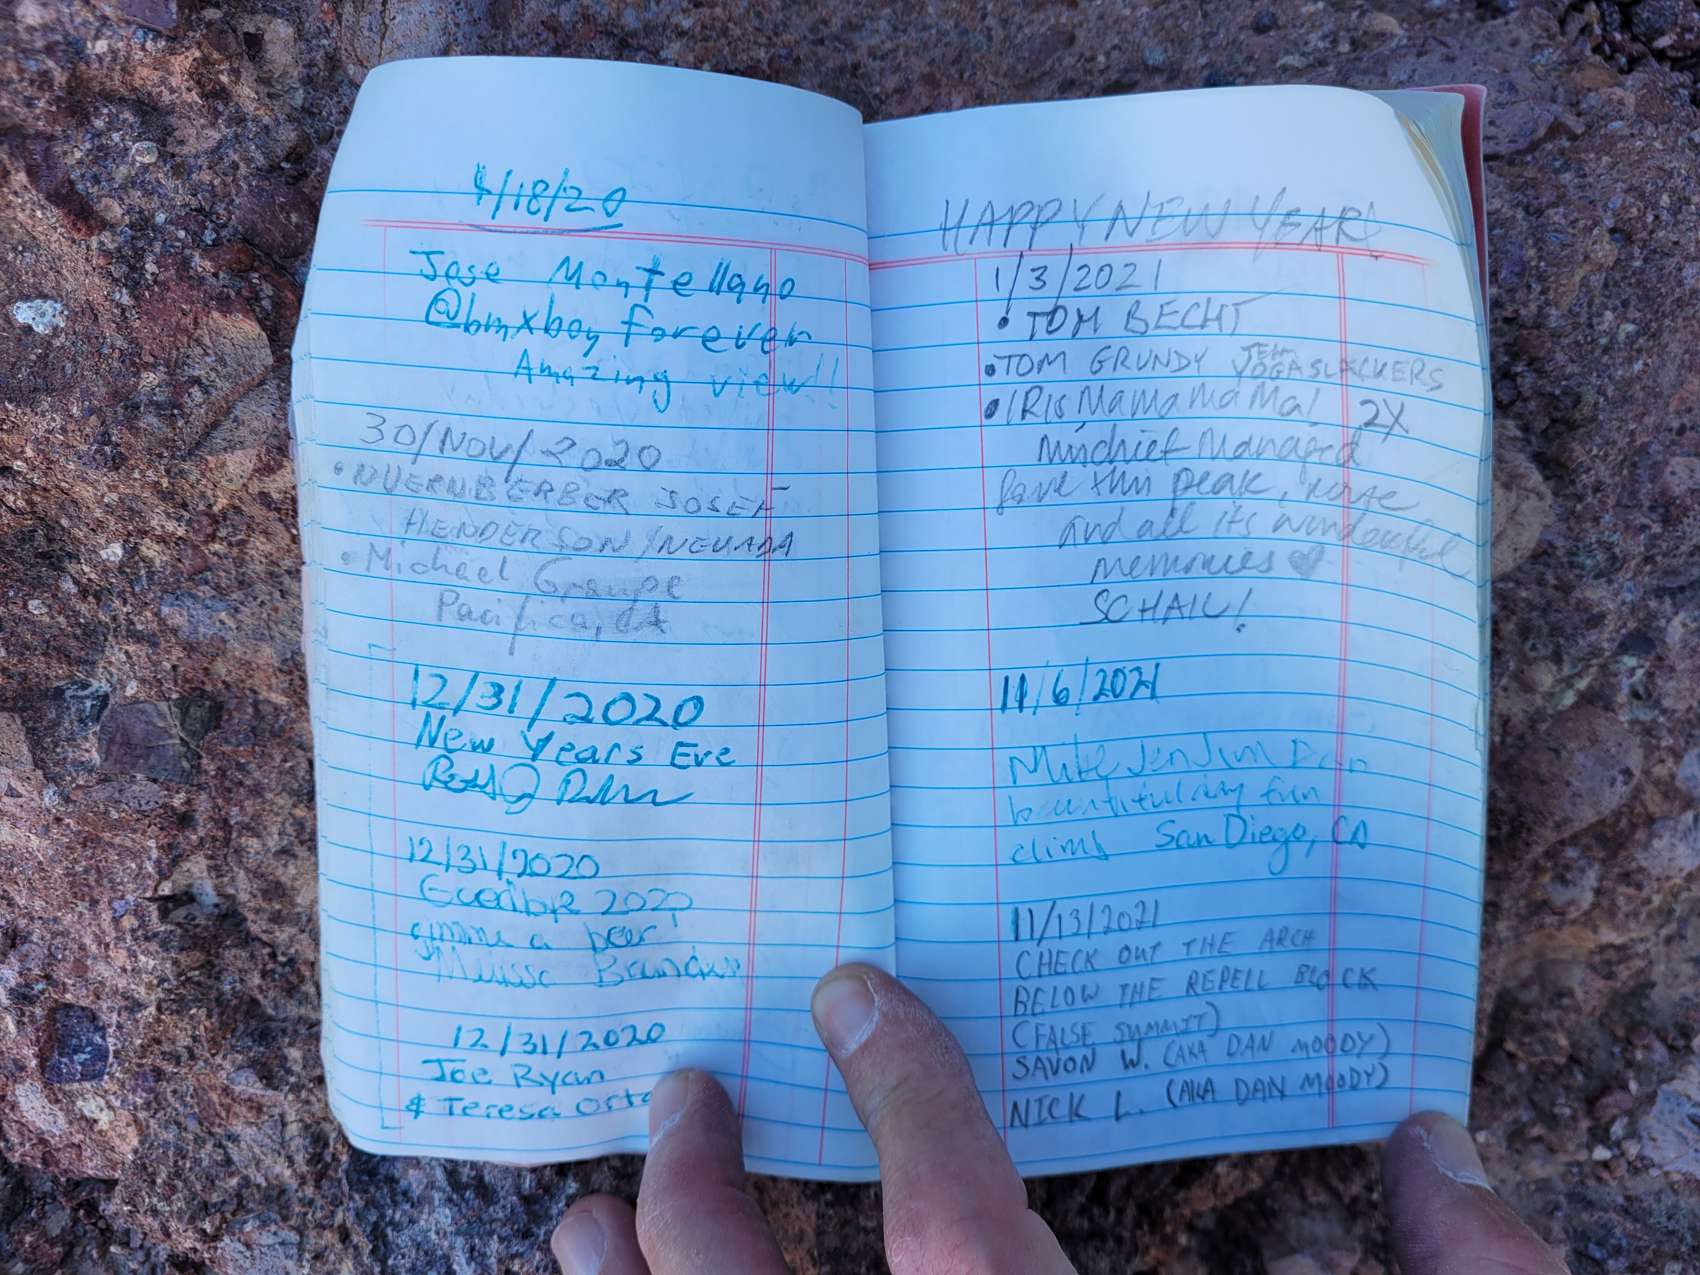 /18/20
Jose Montellano
@bmxboyforever
Amazing view!!
30/NOV/2020
• NUERNBERBER JOSEF
HENDERSON/NEVADA
• Michael
Pacifica, CA
12/31/2020
New Years Eve
12/31/2020
2020
gimme a beer
12/31/2020
Joe Ryan
& Teresa
HAPPY NEW YEAR!
1/3/2021
• TOM BECHT
• TOM GRUNDY TEAM YOGASLACKERS
• IRIS MaMaMaMa! 2X
Mischief Managed
Love this peak, route
and all its wonderful
memories ♥
SCHAIL!
11/6/2021
Mike Jen Jim Dan
beautiful day fun
climb San Diego, CA
11/13/2021
CHECK OUT THE ARCH
BELOW THE REPELL BLOCK
(FALSE SUMMIT)
SAVON W. (AKA DAN MOODY)
NICK L. (AKA DAN MOODY)